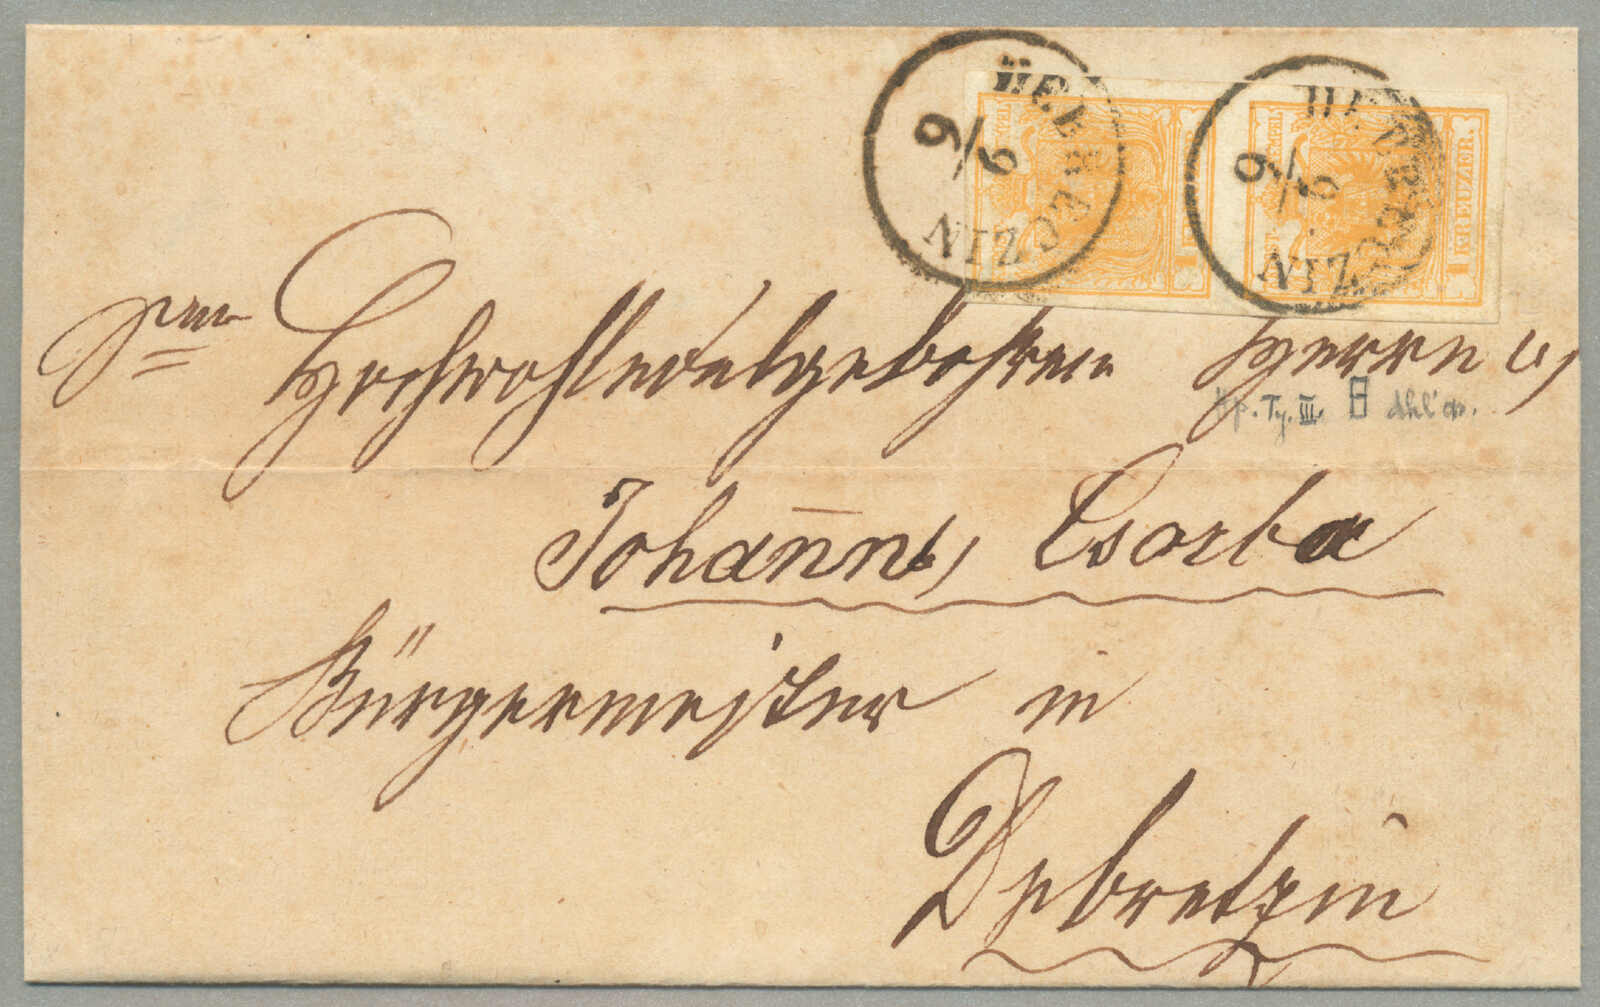 DEBRECZIN 9/6
DEBRECZIN 9/6
1 KREUZER.
Hochwohledelgebohrenen Herrn
Hp. Ty. III.
Johann Csorba
Bürgermeister in
Debretzin